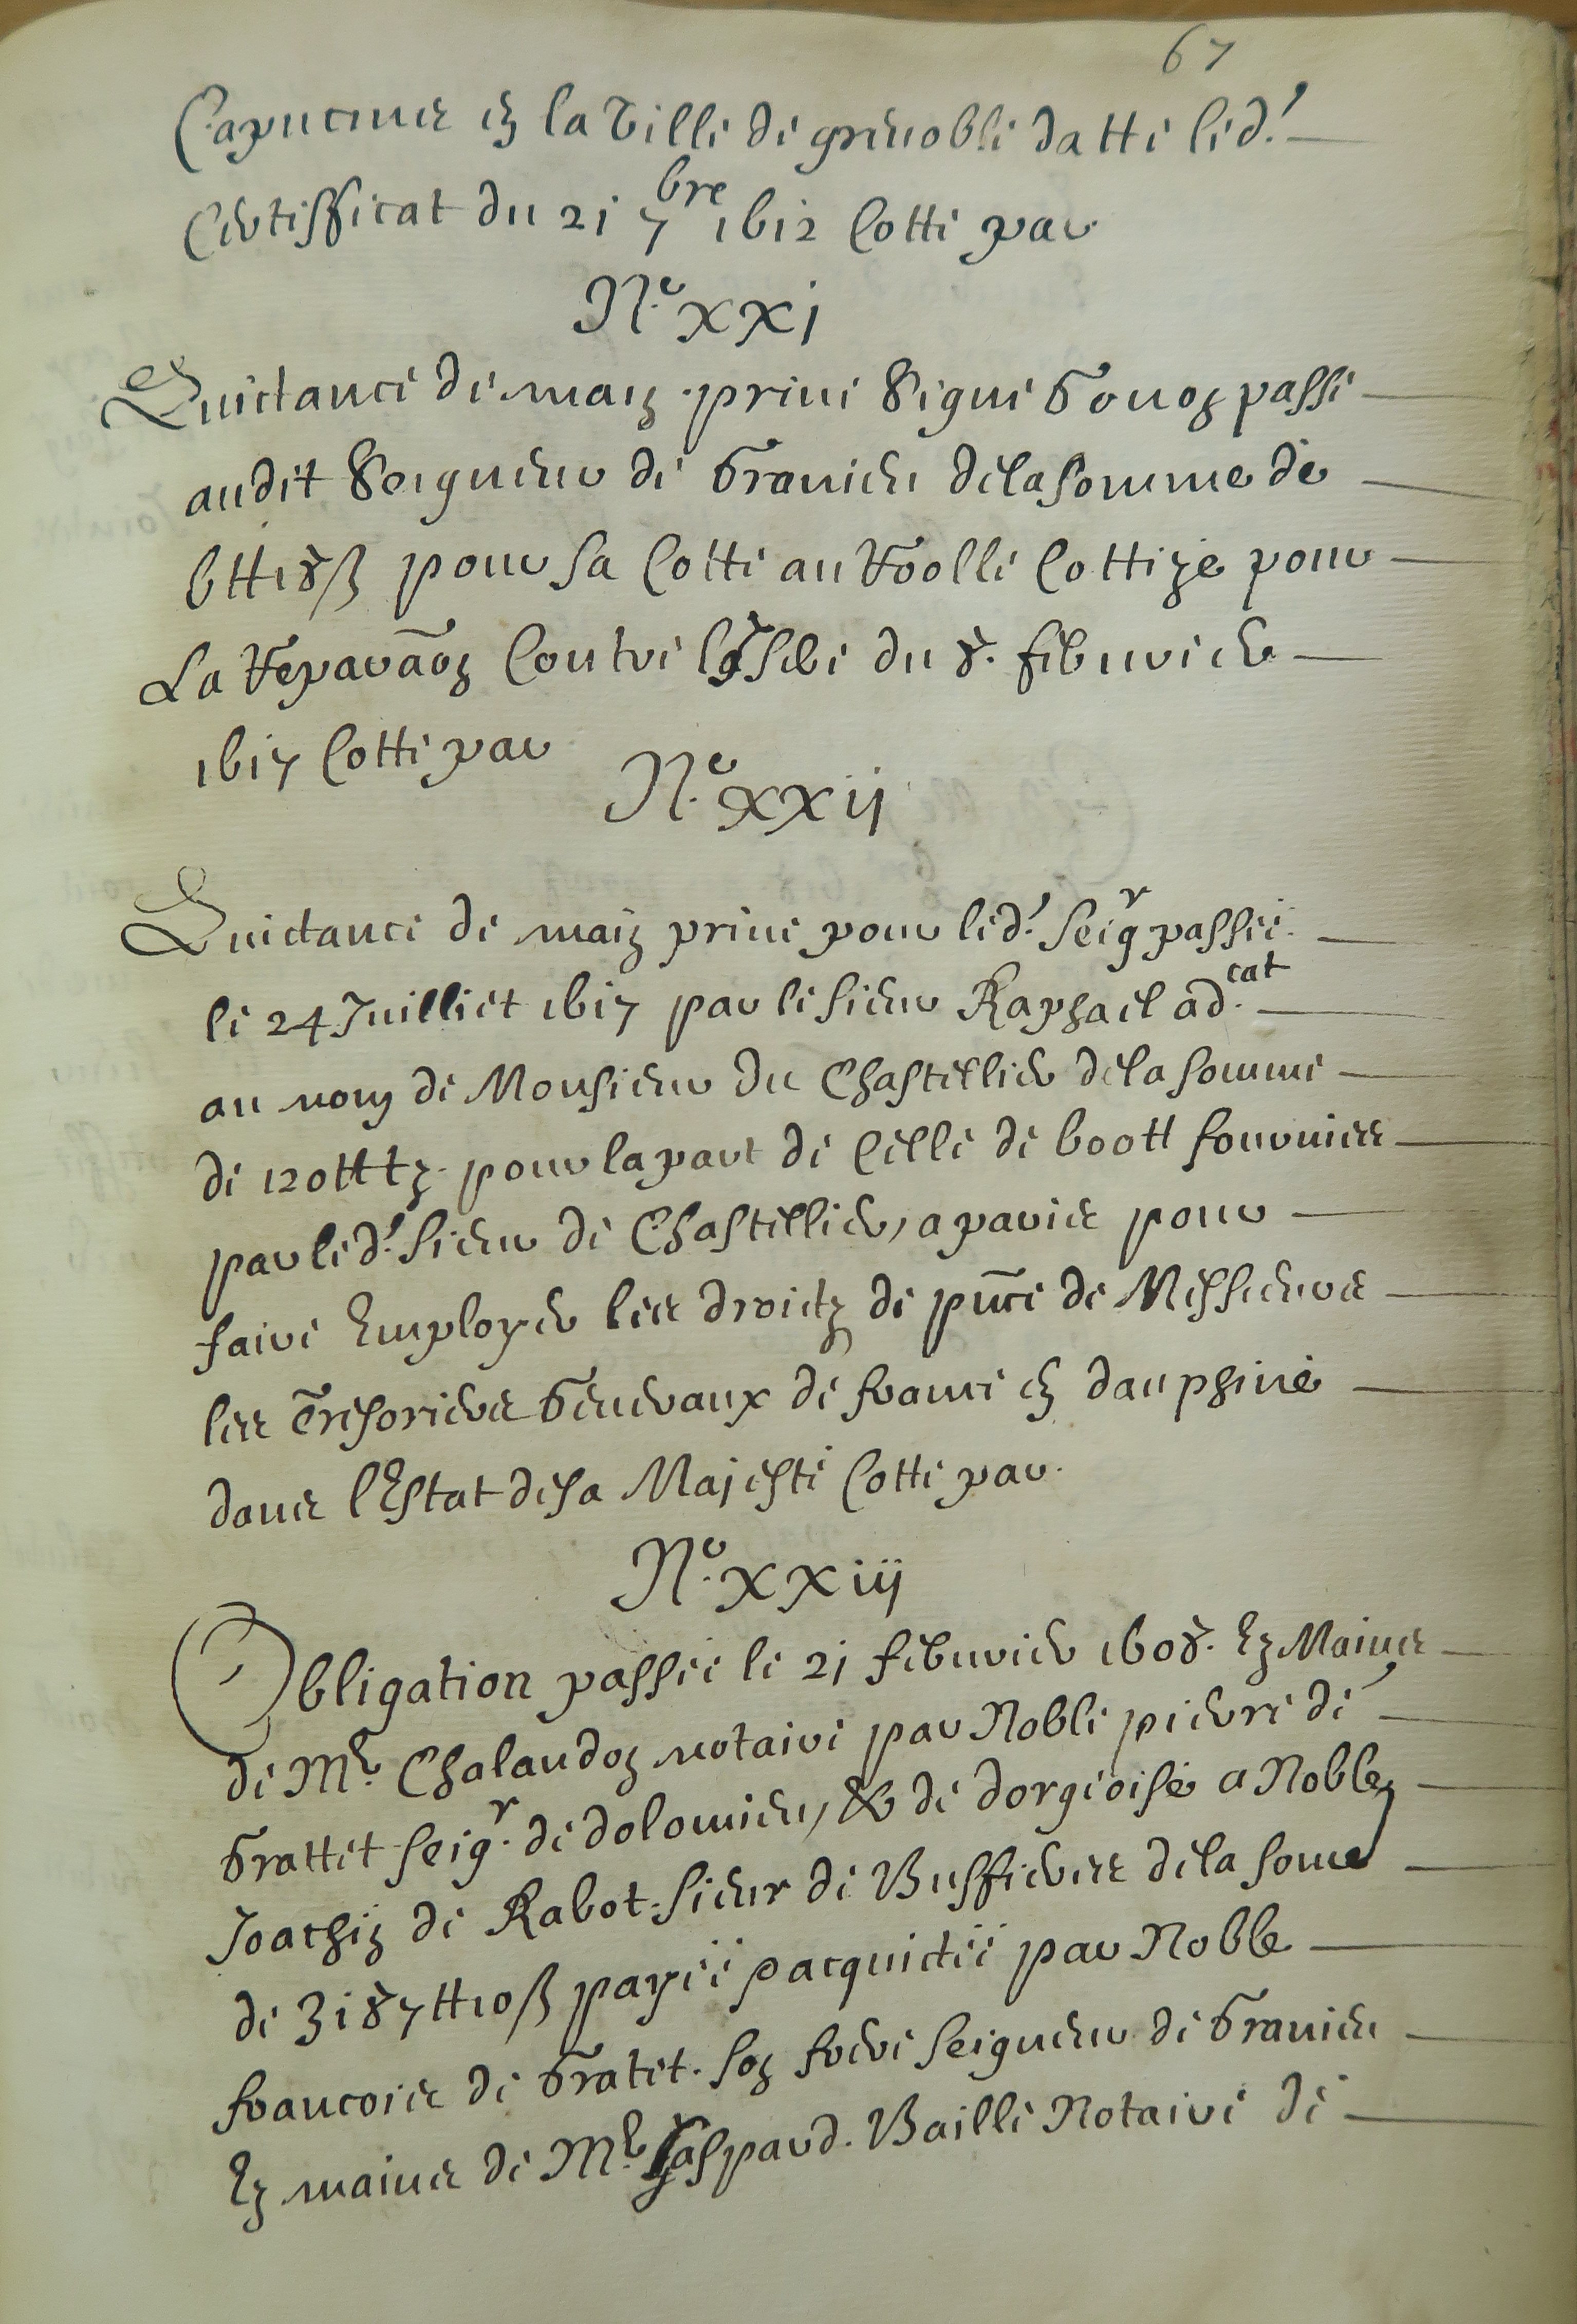 67
Capucines en la Ville de grenoble datté led.t
Certifficat du 21 7bre 1612 Cotté par
N.o xxj
Quictance de main privé Signé Gonon passé
audit Seigneur de Granieu de la somme de
6tt 18ß pour sa Cotte au Roolle Cottizé pour
La Repara͠on Contre l'Isere du 8. febvrier
1617 Cotté par
N.o xxij
Quictance de main privé pour led.t Seigr passée
le 24 Juilliet 1617 par le sieur Raphael ad.cat
au nom de Monsieur du Chastellier de la somme
de 120tt tz. pour la part de Celle de 600tt fournies
par led.t sieur de Chastellier, a paries pour
faire Employer les droictz de pn͠ce de Messieurs
les Tresoriers Generaux de france en dauphiné
dans l'Estat de sa Majesté Cotté par
N.o xxiij
Obligation passée le 21 febvrier 1608. Ez Mains
de Me. Chalandon notaire par Noble pierre de
Grattet seigr. de dolomieu, & de dorgeoise a Noble
Joachin de Rabot sieur de Buffieres de la some
de 3187tt 10ß payée & acquictée par Noble
francois de Gratet. son frere seigneur de Granieu
Ez mains de Me. Gaspard. Baille Notaire de